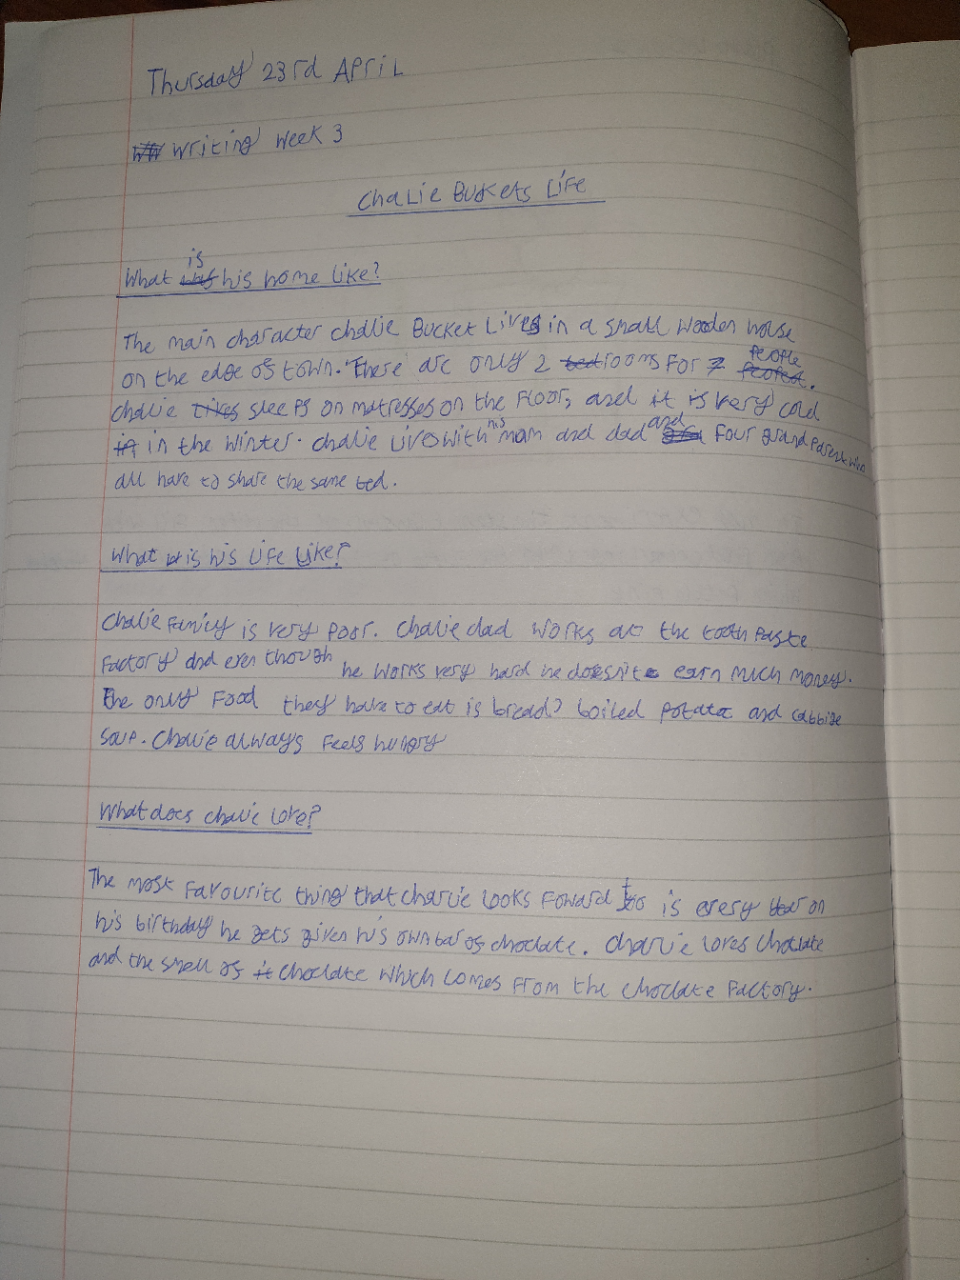 Thursday 23rd April
Writing Week 3
Chalie Buckets Life
What is his home like?
The main character chalie Bucket Lives in a small wooden house
on the edge of town. There are only 2 rooms For 7 people.
chalie sleeps on matresses on the Floor, and it is very cold
in the winter. chalie lives with his mam and dad and four grandparents who
all have to share the same bed.
What is his life like?
Chalie Family is very poor. Chalie dad works at the tooth paste
Factory and even though he works very hard he doesn't earn much money.
The only Food they have to eat is bread, boiled potatoe and cabbige
soup. Chalie always Feels hungry
What does chalie love?
The most Favourite thing that charlie looks Foward to is every year on
his birthday he gets given his own bar of choclate. Charlie loves choclate
and the smell of choclate which comes From the choclate Factory.